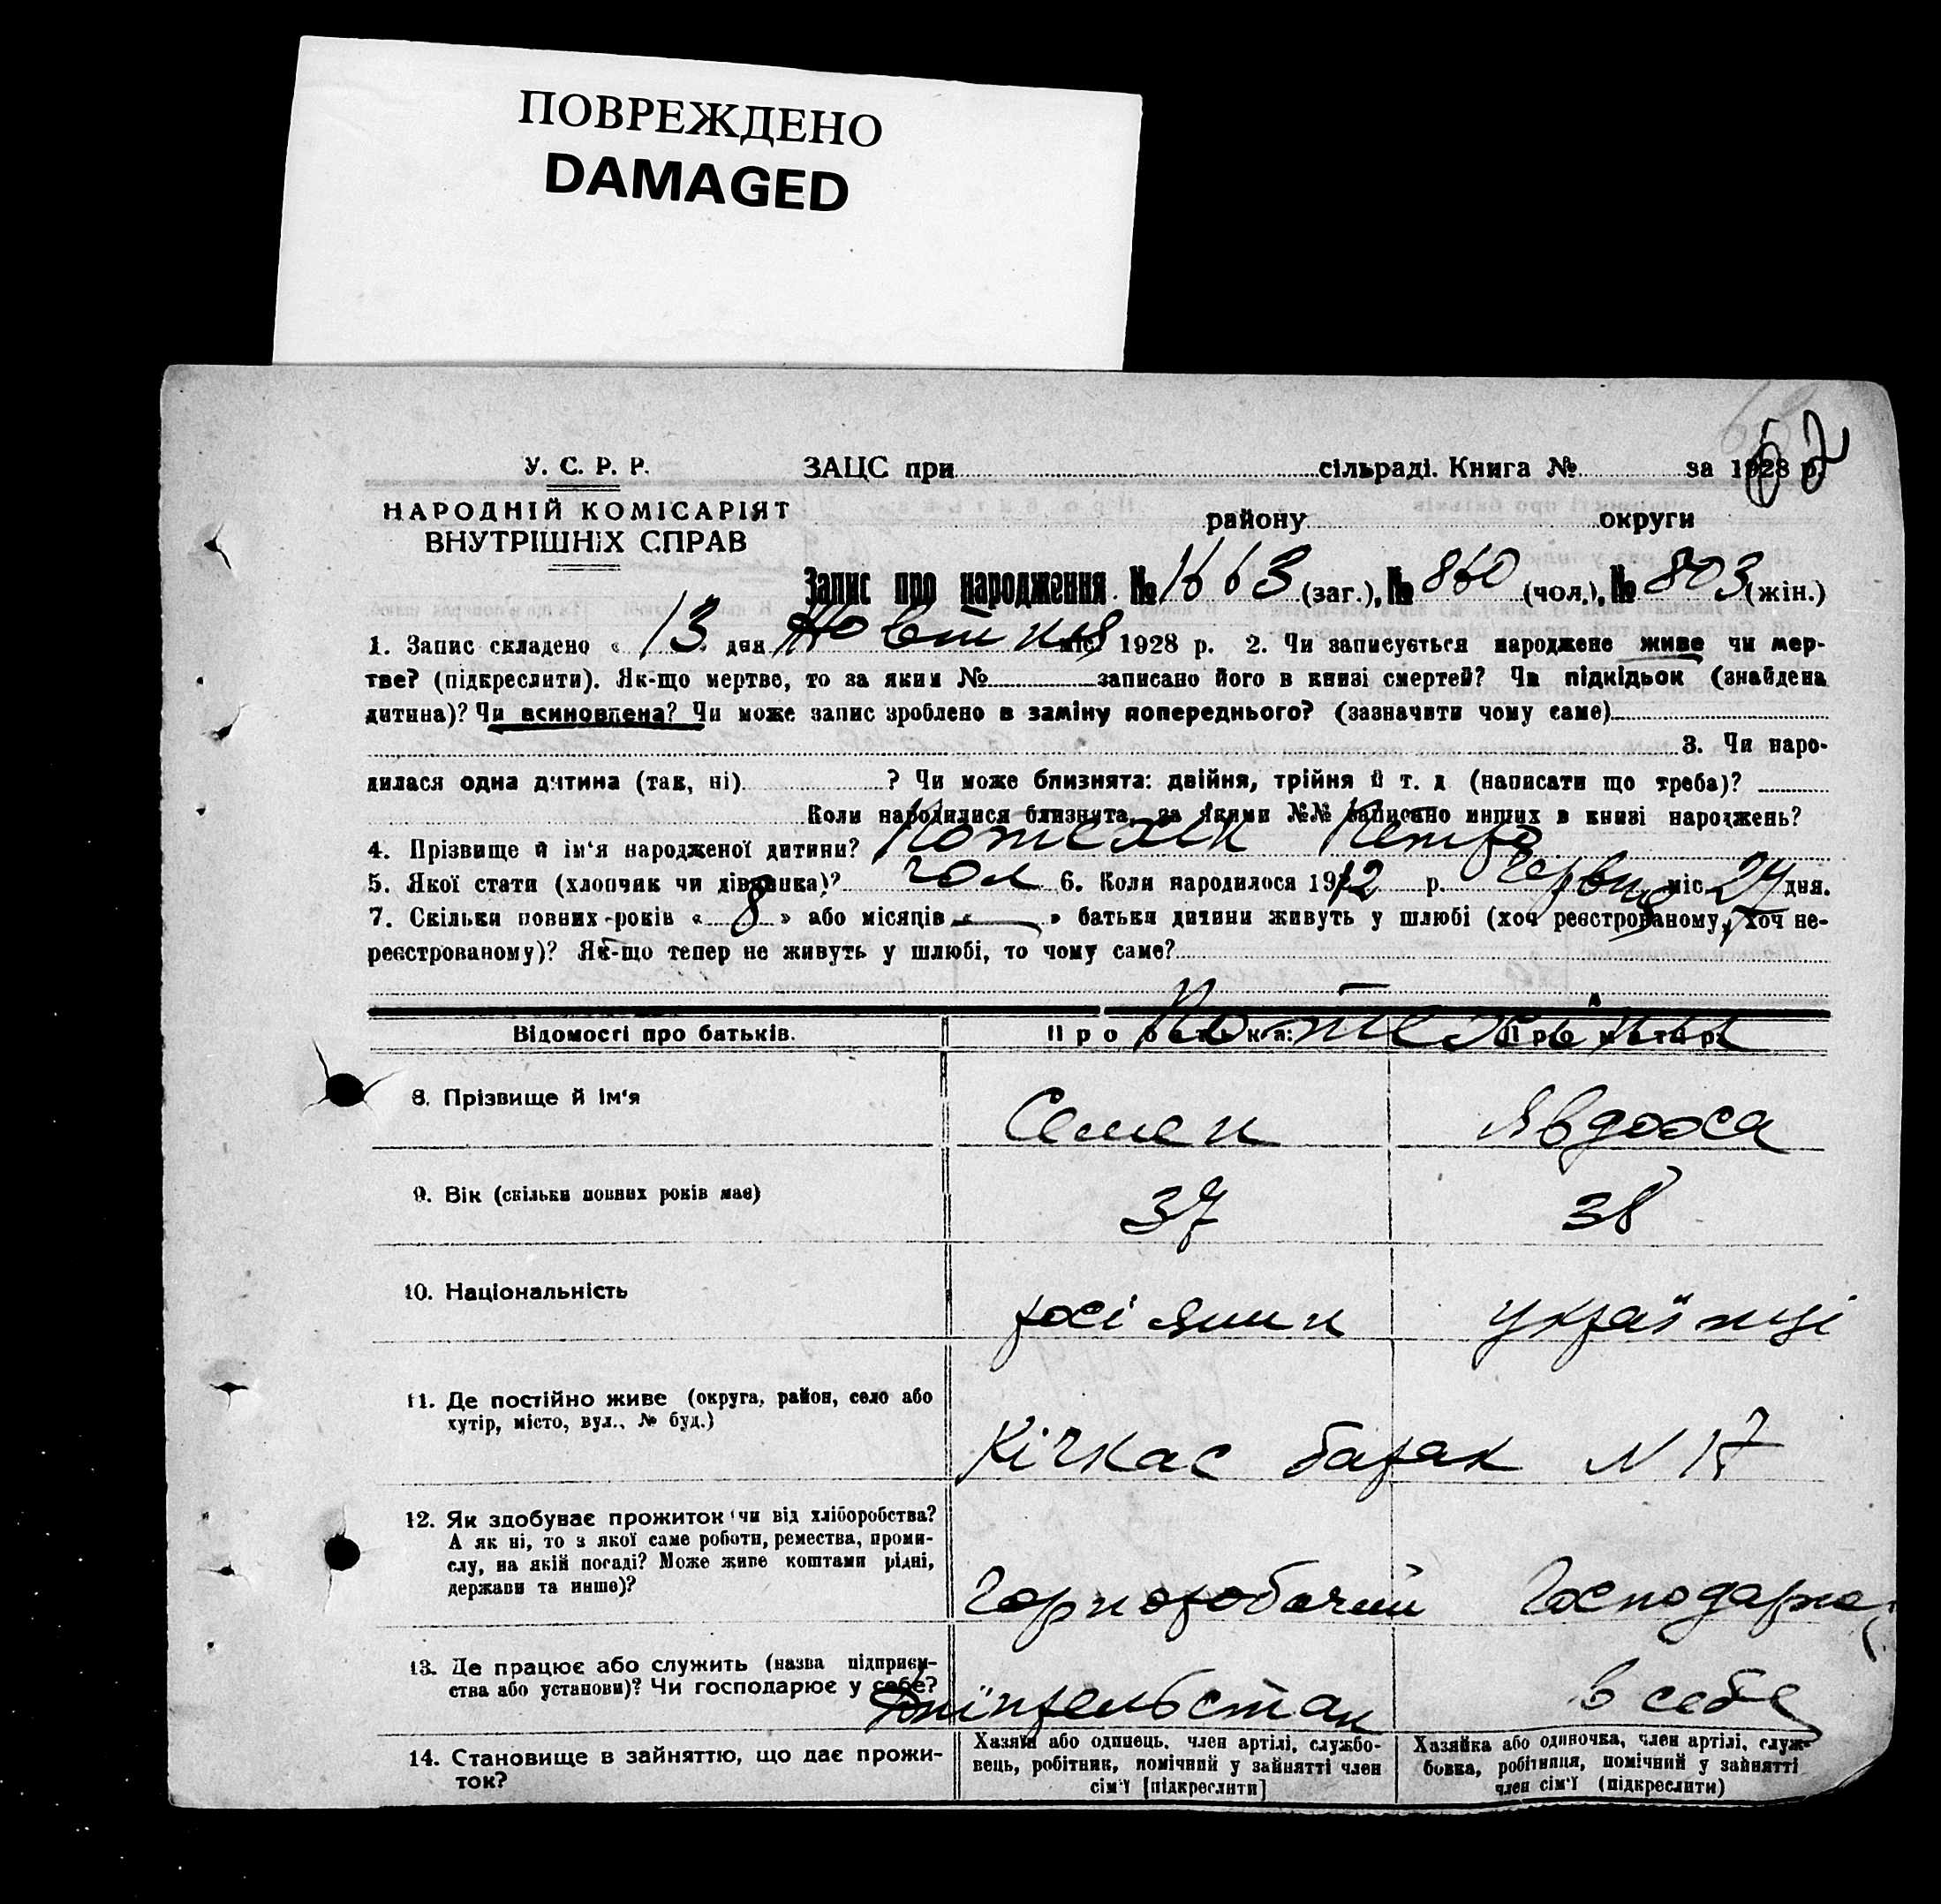 ПОВРЕЖДЕНО
DAMAGED
62
У. С. Р. Р.
НАРОДНІЙ КОМІСАРІЯТ
ВНУТРІШНІХ СПРАВ
ЗАЦС при сільраді. Книга № за 1928 р.
району округи
Запис про народження № 1663 (заг.), № 860 (чол.), № 803 (жін.)
1. Запис складено « 13 » дня Жовтня міс. 1928 р. 2. Чи записується народжене живе чи мер-
тве? (підкреслити). Як-що мертве, то за яким № записано його в книзі смертей? Чи підкідьок (знайдена
дитина)? Чи всиновлена? Чи може запис зроблено в заміну попереднього? (зазначити чому саме)
3. Чи наро-
дилася одна дитина (так, ні) ? Чи може близнята: двійня, трійня й т. д (написати що треба)?
Коли народилися близнята, за якими №№ записано инших в книзі народжень?
4. Прізвище й ім'я народженої дитини? Петро
5. Якої стати (хлопчик чи дівчинка)? чол 6. Коли народилося 1912 р. Червня міс. 24 дня.
7. Скільки повних років « 8 » або місяців « — » батьки дитини живуть у шлюбі (хоч реєстрованому, хоч не-
реєстрованому)? Як-що тепер не живуть у шлюбі, то чому саме?
Відомості про батьків. Про батька: Про матір:
8. Прізвище й ім'я Семен Явдоха
9. Вік (скільки повних років має) 37 38
10. Національність росіянин українці
11. Де постійно живе (округа, район, село або
хутір, місто, вул., № буд.)
Кічкас барак N 17
12. Як здобуває прожиток чи від хліборобства?
А як ні, то з якої саме роботи, ремества, проми-
слу, на якій посаді? Може живе коштами рідні,
держави та инше)?
Чорноробочий Господарка
13. Де працює або служить (назва підприєм-
ства або установи)? Чи господарює у себе?
Дніпрельстан в себе
14. Становище в зайняттю, що дає прожи-
ток?
Хазяїн або одинець, член артілі, службо-
вець, робітник, помічний у зайнятті член
сім'ї [підкреслити]
Хазяйка або одиночка, член артілі, служ-
бовка, робітниця, помічний у зайнятті
член сім'ї (підкреслити)